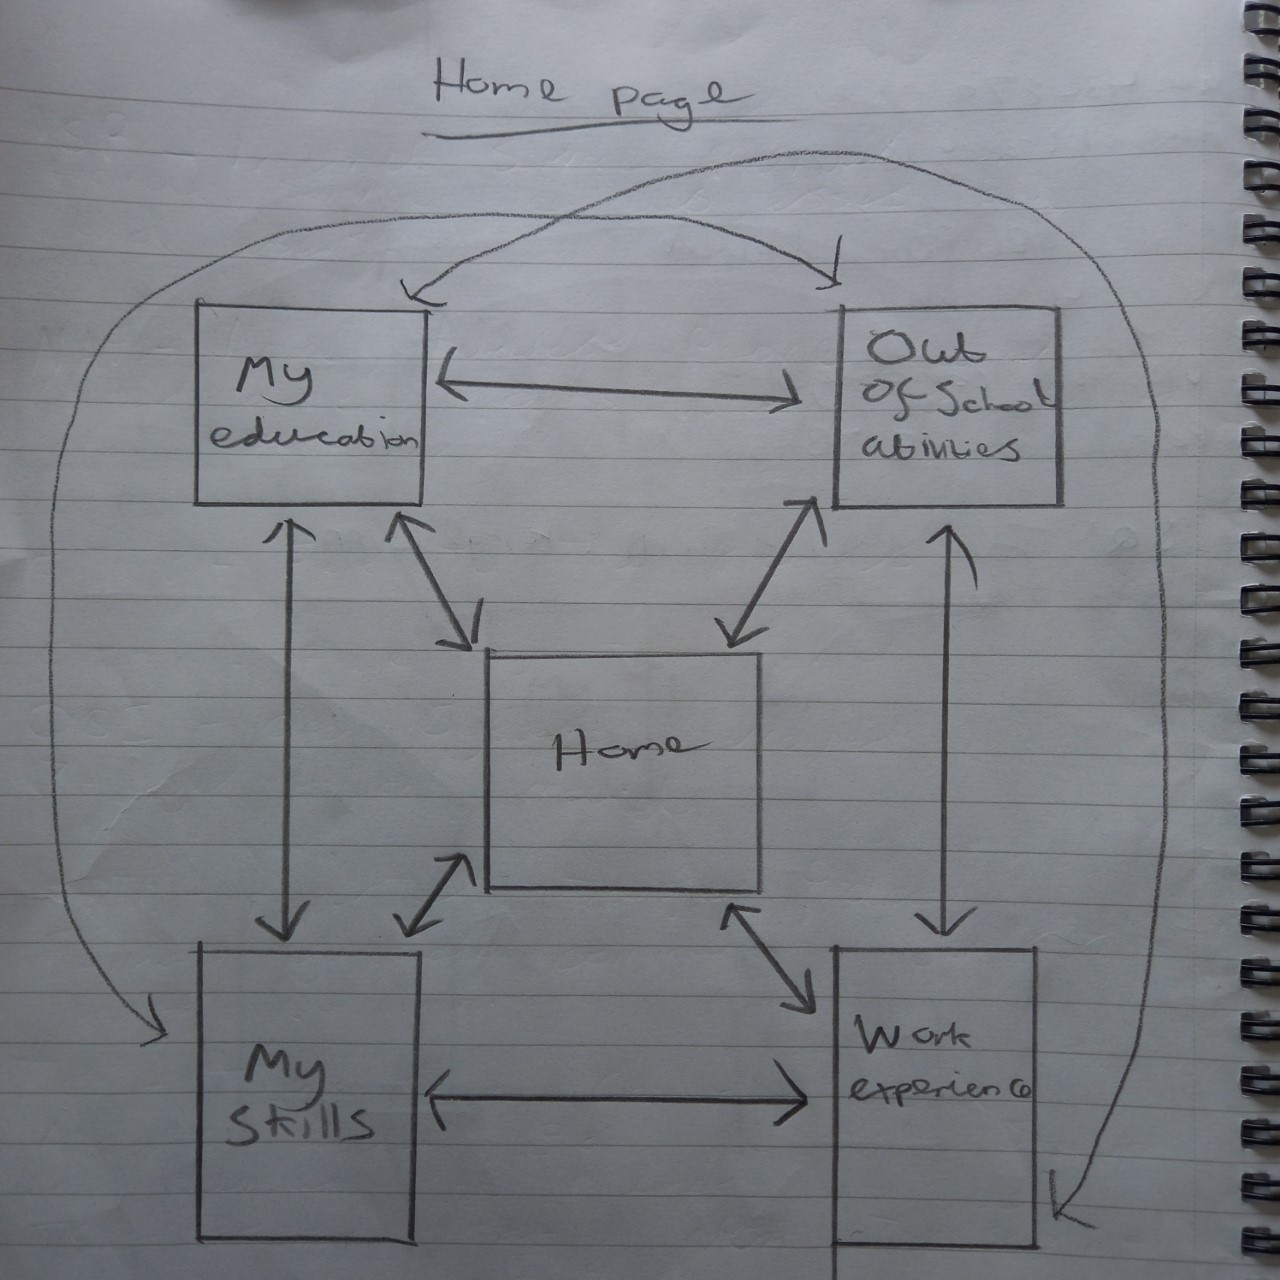 Home page
My
education
Out
Of School
abivities
Home
My
skills
Work
experience